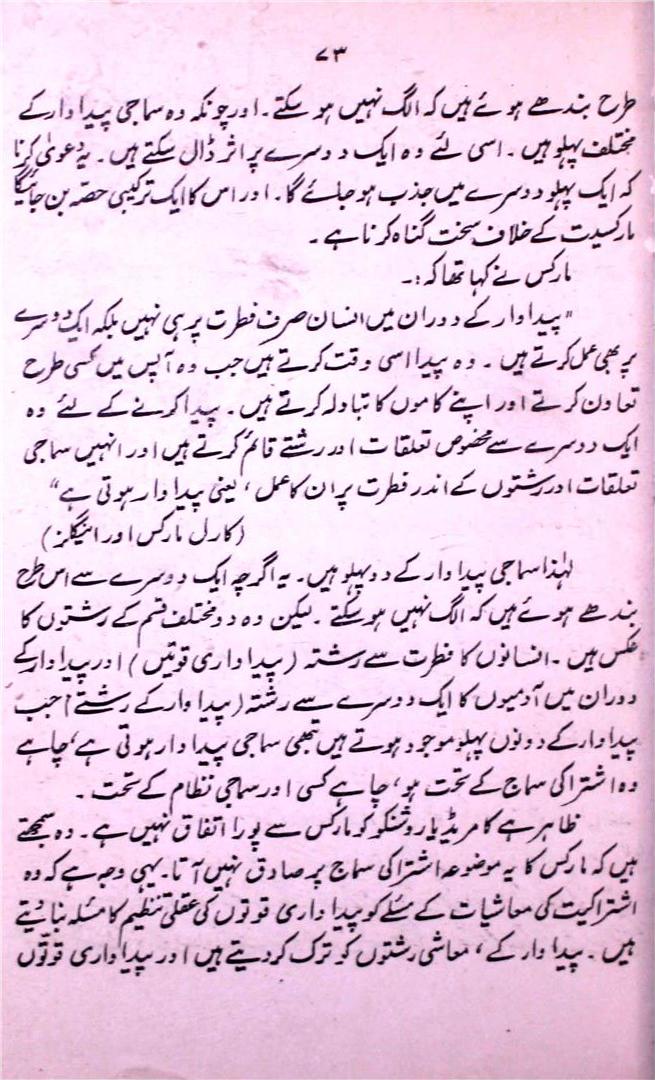 ۷۳
طرح بندھے ہوئے ہیں کہ الگ نہیں ہو سکتے۔ اور چونکہ وہ سماجی پیداوار کے
مختلف پہلو ہیں۔ اسی لئے وہ ایک دوسرے پر اثر ڈال سکتے ہیں۔ یہ دعویٰ کرنا
کہ ایک پہلو دوسرے میں جذب ہو جائے گا۔ اور اس کا ایک ترکیبی حصہ بن جائیگا
مارکسیت کے خلاف سخت گناہ کرنا ہے۔
مارکس نے کہا تھا کہ:۔
"پیداوار کے دوران میں انسان صرف فطرت پر ہی نہیں بلکہ ایک دوسرے
پر بھی عمل کرتے ہیں۔ وہ پیدا اسی وقت کرتے ہیں جب وہ آپس میں کسی طرح
تعاون کرتے اور اپنے کاموں کا تبادلہ کرتے ہیں۔ پیدا کرنے کے لئے وہ
ایک دوسرے سے مخصوص تعلقات اور رشتے قائم کرتے ہیں اور انہیں سماجی
تعلقات اور رشتوں کے اندر فطرت پر ان کا عمل، یعنی پیداوار ہوتی ہے"
(کارل مارکس اور اینگلز)
لہٰذا سماجی پیداوار کے دو پہلو ہیں۔ یہ اگرچہ ایک دوسرے سے اس طرح
بندھے ہوئے ہیں کہ الگ نہیں ہو سکتے۔ لیکن وہ دو مختلف قسم کے رشتوں کا
عکس ہیں۔ انسانوں کا فطرت سے رشتہ (پیداواری قوتیں) اور پیداوار کے
دوران میں آدمیوں کا ایک دوسرے سے رشتہ (پیداوار کے رشتے) جب
پیداوار کے دونوں پہلو موجود ہوتے ہیں تبھی سماجی پیداوار ہوتی ہے، چاہے
وہ اشتراکی سماج کے تحت ہو، چاہے کسی اور سماجی نظام کے تحت۔
ظاہر ہے کامریڈ یاروشنکو کو مارکس سے پورا اتفاق نہیں ہے۔ وہ سمجھتے
ہیں کہ مارکس کا یہ موضوعہ اشتراکی سماج پر صادق نہیں آتا۔ یہی وجہ ہے کہ وہ
اشتراکیت کی معاشیات کے مسئلے کو پیداواری قوتوں کی عقلی تنظیم کا مسئلہ بنا دیتے
ہیں۔ پیداوار کے، معاشی رشتوں کو ترک کر دیتے ہیں اور پیداواری قوتوں